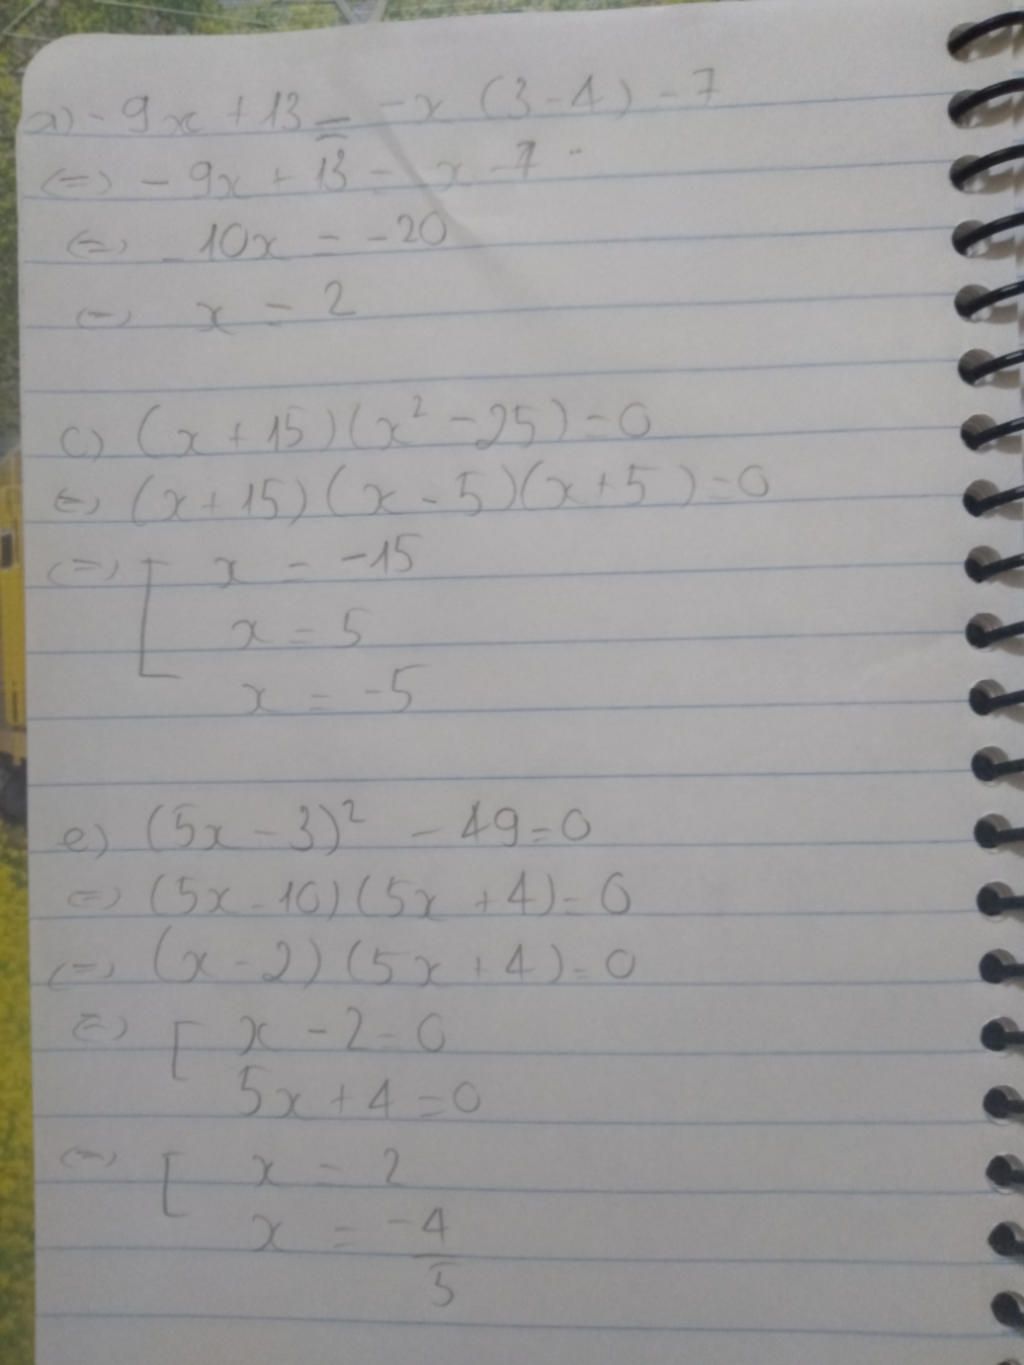 a) -9x + 13 = -x (3-4) - 7
<=> -9x + 13 = x - 7
<=> -10x = -20
<=> x = 2
c) (x + 15)(x² - 25) = 0
<=> (x + 15)(x - 5)(x + 5) = 0
<=> [ x = -15
x = 5
x = -5
e) (5x - 3)² - 49 = 0
<=> (5x - 10)(5x + 4) = 0
<=> (x - 2)(5x + 4) = 0
<=> [ x - 2 = 0
5x + 4 = 0
<=> [ x = 2
x = -4/5